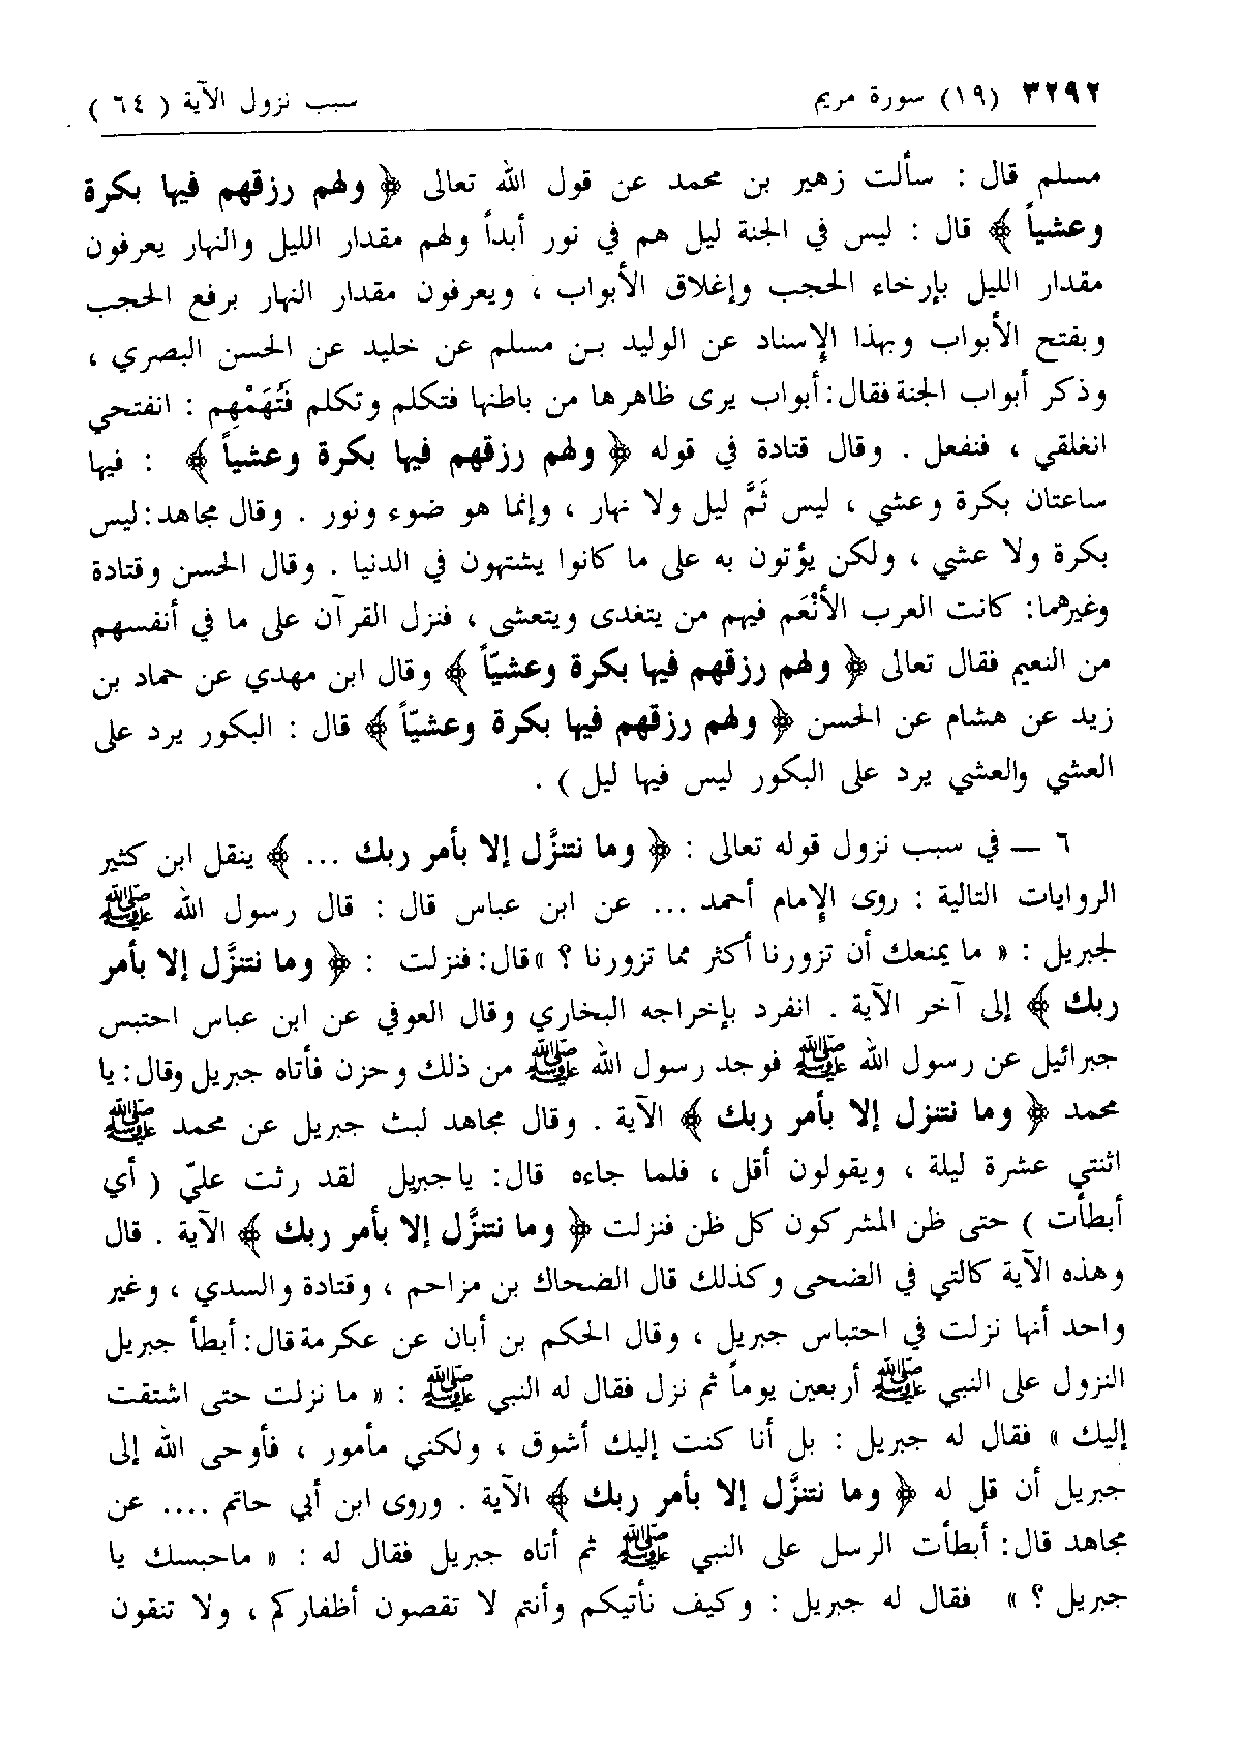 ٣٢٩٢ (١٩) سورة مريم سبب نزول الآية ( ٦٤ )
مسلم قال : سألت زهير بن محمد عن قول الله تعالى ﴿ ولهم رزقهم فيها بكرة
وعشياً ﴾ قال : ليس في الجنة ليل هم في نور أبداً ولهم مقدار الليل والنهار يعرفون
مقدار الليل بإرخاء الحجب وإغلاق الأبواب ، ويعرفون مقدار النهار برفع الحجب
وبفتح الأبواب وبهذا الإسناد عن الوليد بن مسلم عن خليد عن الحسن البصري ،
وذكر أبواب الجنة فقال : أبواب يرى ظاهرها من باطنها فتكلم وتكلم فَتُهَمْهِم : انفتحي
انغلقي ، فنفعل . وقال قتادة في قوله ﴿ ولهم رزقهم فيها بكرة وعشياً ﴾ : فيها
ساعتان بكرة وعشي ، ليس ثَمَّ ليل ولا نهار ، وإنما هو ضوء ونور . وقال مجاهد : ليس
بكرة ولا عشي ، ولكن يؤتون به على ما كانوا يشتهون في الدنيا . وقال الحسن وقتادة
وغيرهما : كانت العرب الأنْعَم فيهم من يتغدى ويتعشى ، فنزل القرآن على ما في أنفسهم
من النعيم فقال تعالى ﴿ ولهم رزقهم فيها بكرة وعشيّاً ﴾ وقال ابن مهدي عن حماد بن
زيد عن هشام عن الحسن ﴿ ولهم رزقهم فيها بكرة وعشيّاً ﴾ قال : البكور يرد على
العشي والعشي يرد على البكور ليس فيها ليل ) .
٦ — في سبب نزول قوله تعالى : ﴿ وما نتنزَّل إلا بأمر ربك ... ﴾ ينقل ابن كثير
الروايات التالية : روى الإمام أحمد ... عن ابن عباس قال : قال رسول الله ﷺ
لجبريل : « ما يمنعك أن تزورنا أكثر مما تزورنا ؟ » قال : فنزلت : ﴿ وما نتنزَّل إلا بأمر
ربك ﴾ إلى آخر الآية . انفرد بإخراجه البخاري وقال العوفي عن ابن عباس احتبس
جبرائيل عن رسول الله ﷺ فوجد رسول الله ﷺ من ذلك وحزن فأتاه جبريل وقال : يا
محمد ﴿ وما نتنزل إلا بأمر ربك ﴾ الآية . وقال مجاهد لبث جبريل عن محمد ﷺ
اثنتي عشرة ليلة ، ويقولون أقل ، فلما جاءه قال : ياجبريل لقد رثت عليّ ( أي
أبطأت ) حتى ظن المشركون كل ظن فنزلت ﴿ وما نتنزَّل إلا بأمر ربك ﴾ الآية . قال
وهذه الآية كالتي في الضحى وكذلك قال الضحاك بن مزاحم ، وقتادة والسدي ، وغير
واحد أنها نزلت في احتباس جبريل ، وقال الحكم بن أبان عن عكرمة قال : أبطأ جبريل
النزول على النبي ﷺ أربعين يوماً ثم نزل فقال له النبي ﷺ : « ما نزلت حتى اشتقت
إليك » فقال له جبريل : بل أنا كنت إليك أشوق ، ولكني مأمور ، فأوحى الله إلى
جبريل أن قل له ﴿ وما نتنزَّل إلا بأمر ربك ﴾ الآية . وروى ابن أبي حاتم .... عن
مجاهد قال : أبطأت الرسل على النبي ﷺ ثم أتاه جبريل فقال له : « ماحبسك يا
جبريل ؟ » فقال له جبريل : وكيف نأتيكم وأنتم لا تقصون أظفاركم ، ولا تنقون